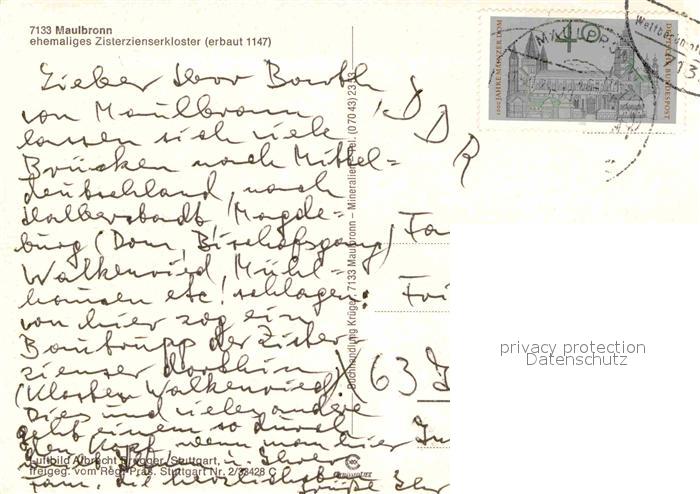 7133 Maulbronn
ehemaliges Zisterzienserkloster (erbaut 1147)
Lieber Herr Barth,
von Maulbronn
lassen sich viele
Brücken nach Mittel=
deutschland, nach
Halberstadt, Magde=
burg (Dom, Bischofsgang)
Walkenried, Mühl=
hausen etc. schlagen:
von hier zog ein
Bautrupp der Zister-
zienser dorthin
(Kloster Walkenried).
Dies und vieles andere
geht einem so durch
den Kopf, wenn man hier
Ihrer
Fam. die herzlichsten
Grüße Ihr
Luftbild Albrecht Brugger, Stuttgart,
freigeg. vom Reg. Präs. Stuttgart Nr. 2/33428 C
Buchhandlung Krüger, 7133 Maulbronn – Mineralien – Tel. (070 43) 23 53
DDR
Fa
Fri
X (63 J
In
40
1000 JAHRE MAINZER DOM
DEUTSCHE BUNDESPOST
MAULBR
Weltberühmt
privacy protection
Datenschutz